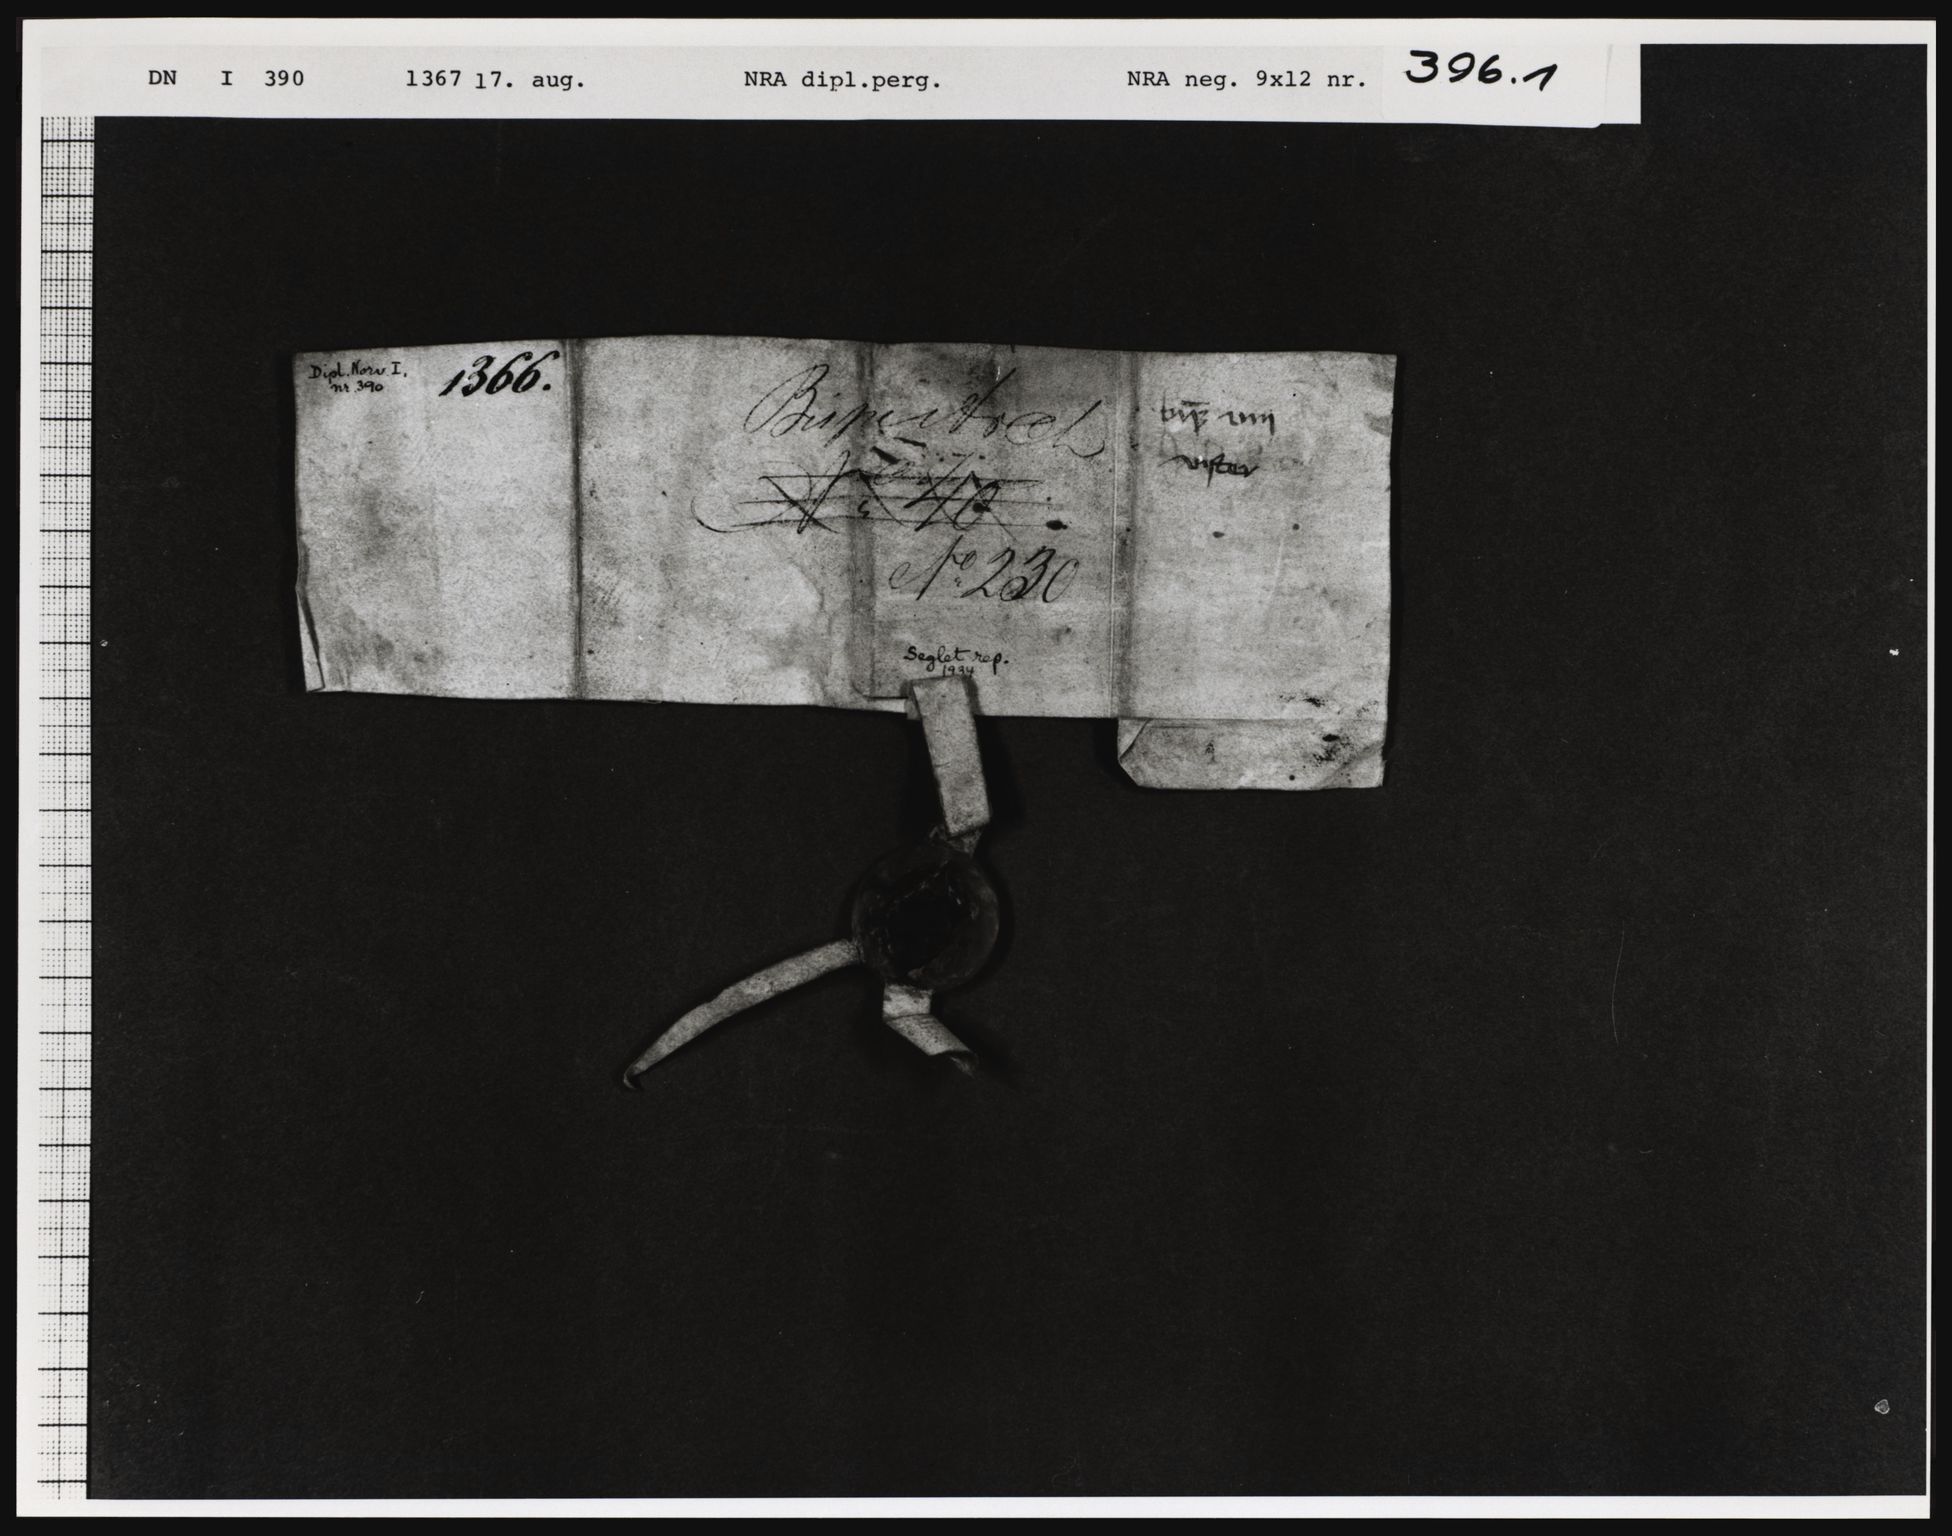 DN I 390 1367 17. aug. NRA dipl.perg. NRA neg. 9x12 nr. 396.1
Dipl. Norv. I.
nr. 390
1366.
No 40
No 230
Seglet rep.
1934